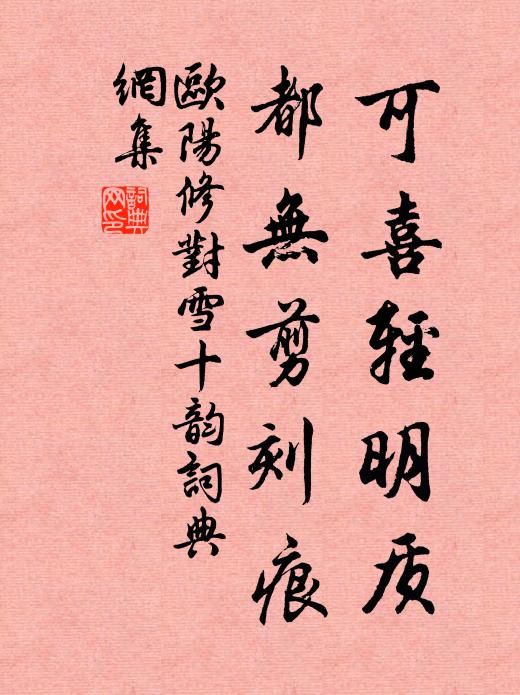 可喜輕明质
都無剪刻痕
歐陽修對雪十韵詞典
網集
詞典
网印